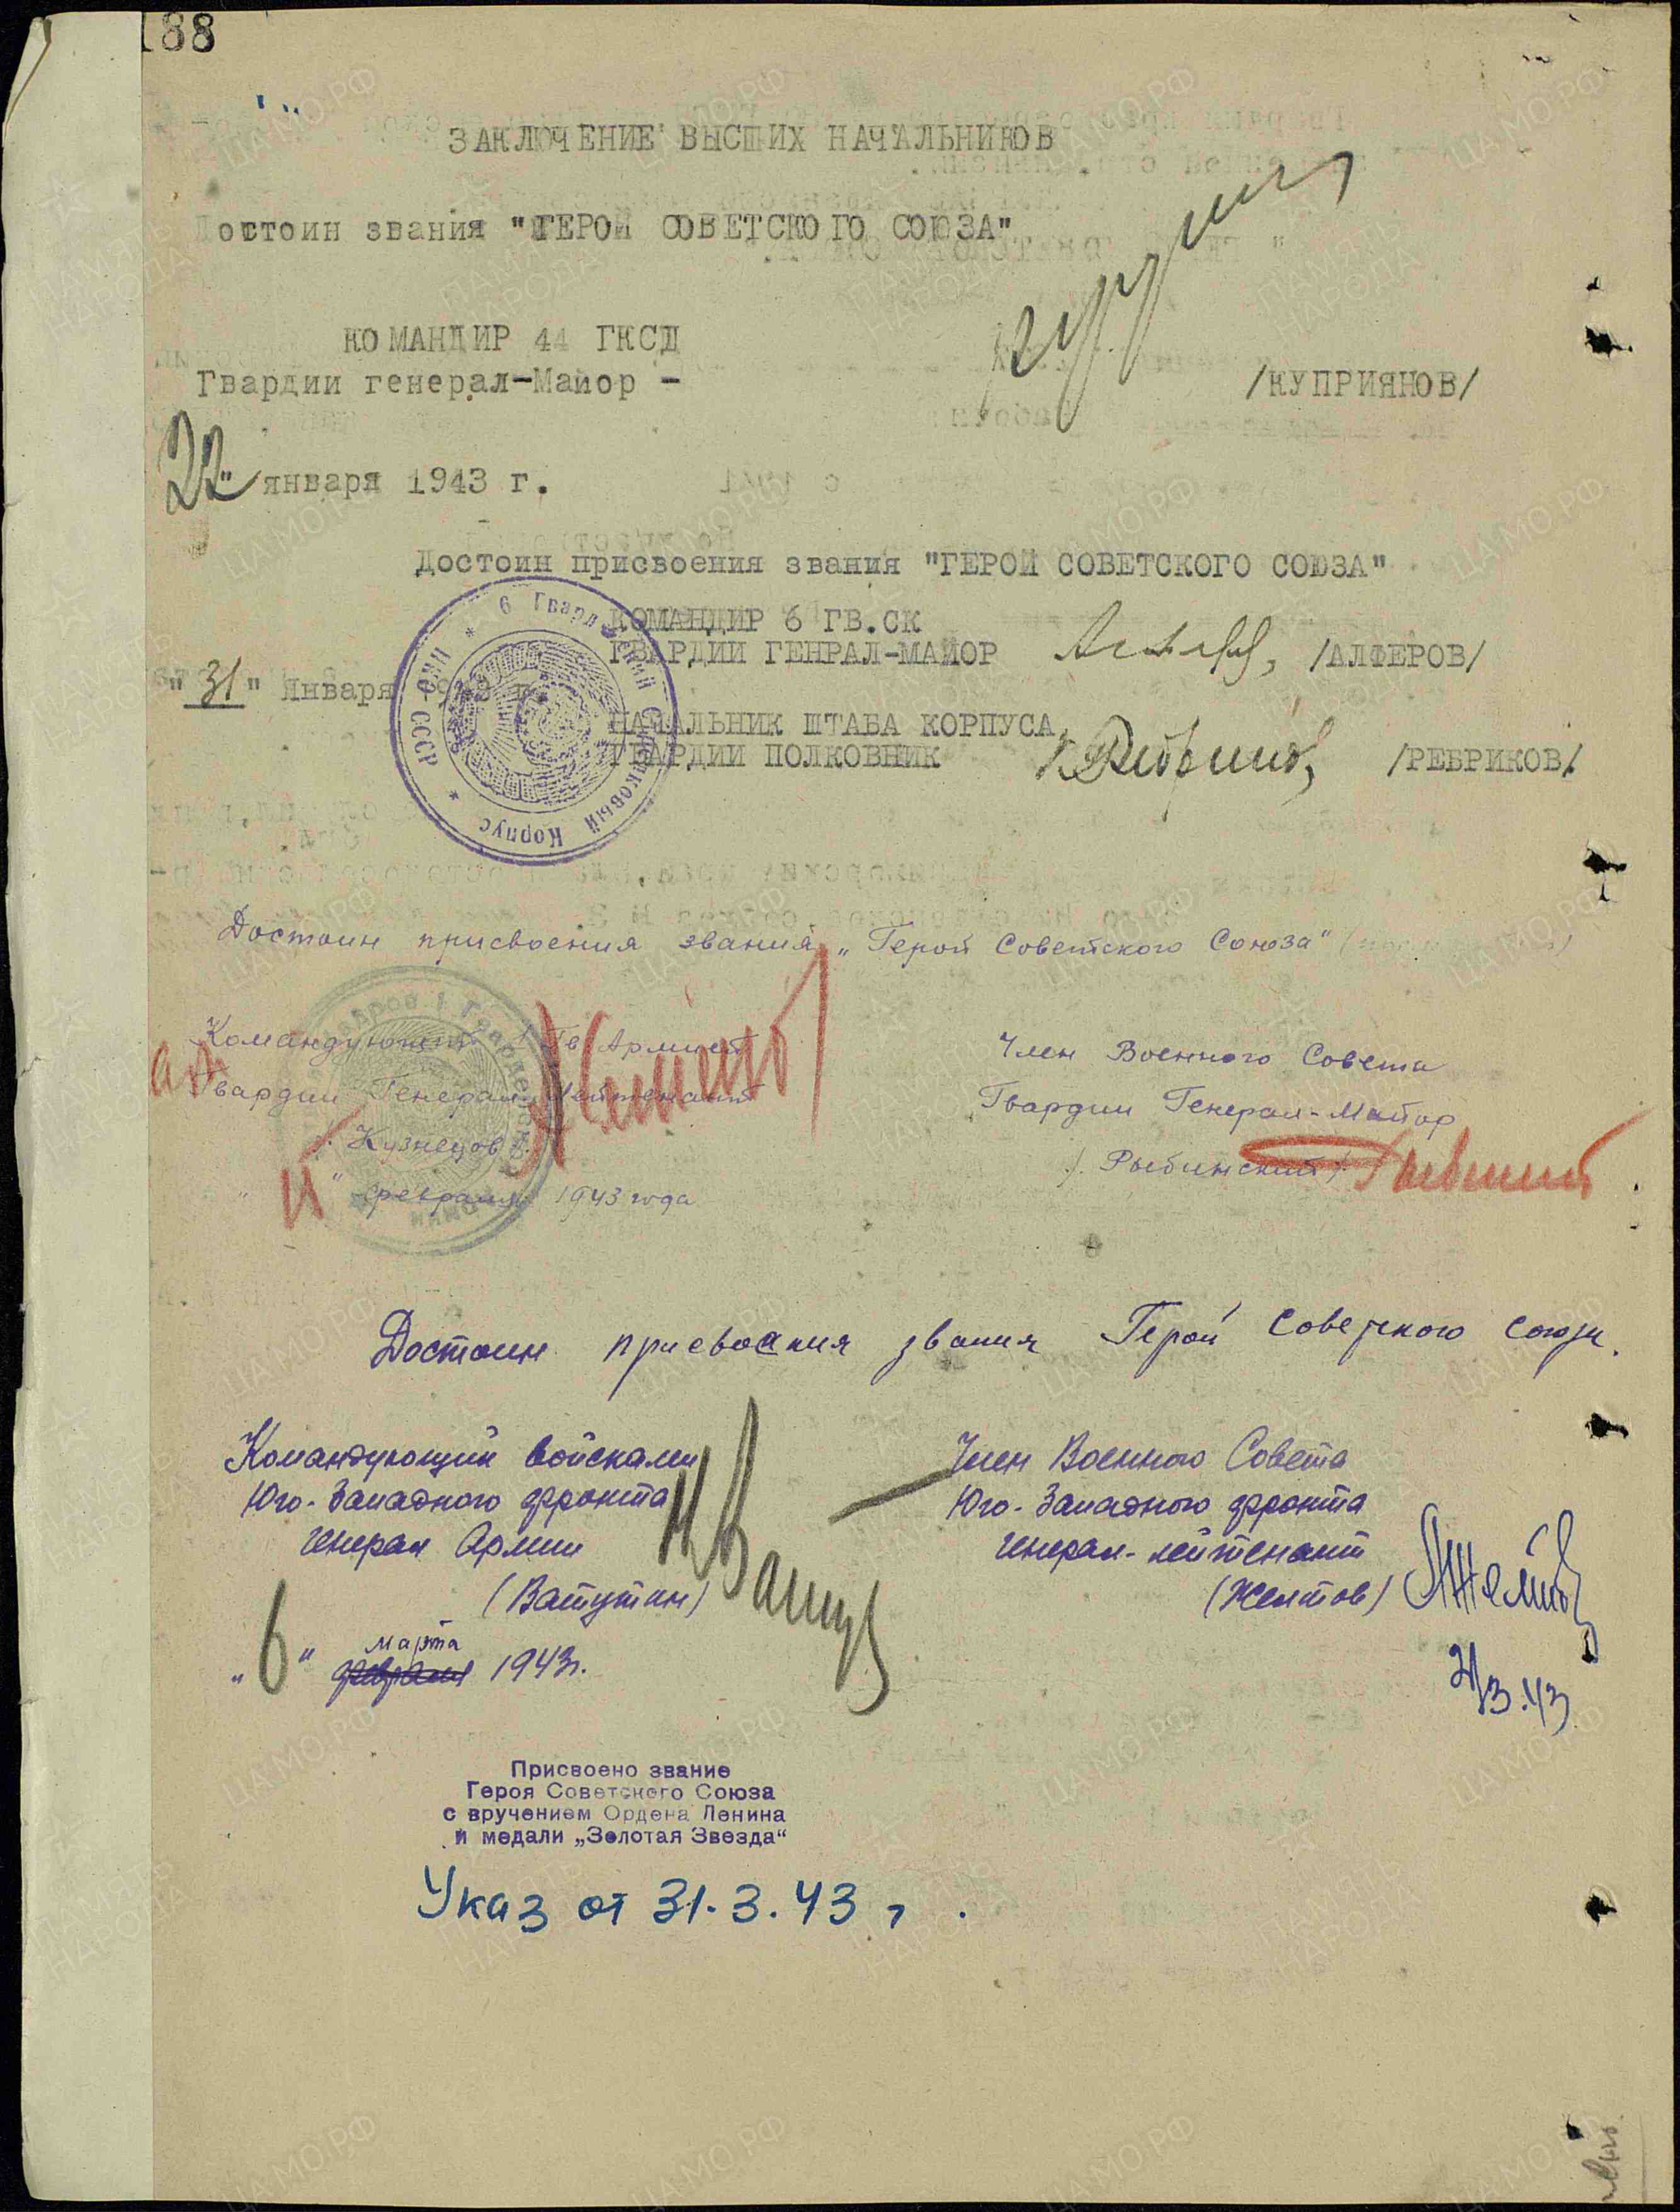 188
ЗАКЛЮЧЕНИЕ ВЫСШИХ НАЧАЛЬНИКОВ
Достоин звания "ГЕРОЙ СОВЕТСКОГО СОЮЗА"
КОМАНДИР 44 ГКСД
Гвардии генерал-Майор - /КУПРИЯНОВ/
22" января 1943 г.
Достоин присвоения звания "ГЕРОЙ СОВЕТСКОГО СОЮЗА"
КОМАНДИР 6 ГВ.СК
ГВАРДИИ ГЕНРАЛ-МАЙОР /АЛФЕРОВ/
"31" Января 1943 г.
НАЧАЛЬНИК ШТАБА КОРПУСА
ГВАРДИИ ПОЛКОВНИК /РЕБРИКОВ/.
НКО - СССР * 6 Гвардейский Стрелковый Корпус *
Достоин присвоения звания „Герой Советского Союза"
Командующий 1 Гв Армией
Гвардии Генерал-Лейтенант
/. Кузнецов /.
" 11 " февраля 1943 года
Член Военного Совета
Гвардии Генерал-Майор
/. Рыбинский /.
Достоин присвоения звания Герой Советского Союза.
Командующий войсками
Юго-Западного фронта
генерал Армии
(Ватутин)
„6" марта февраля 1943г.
Член Военного Совета
Юго-Западного фронта
генерал-лейтенант
(Желтов)
Присвоено звание
Героя Советского Союза
с вручением Ордена Ленина
и медали „Золотая Звезда"
Указ от 31.3.43 г.